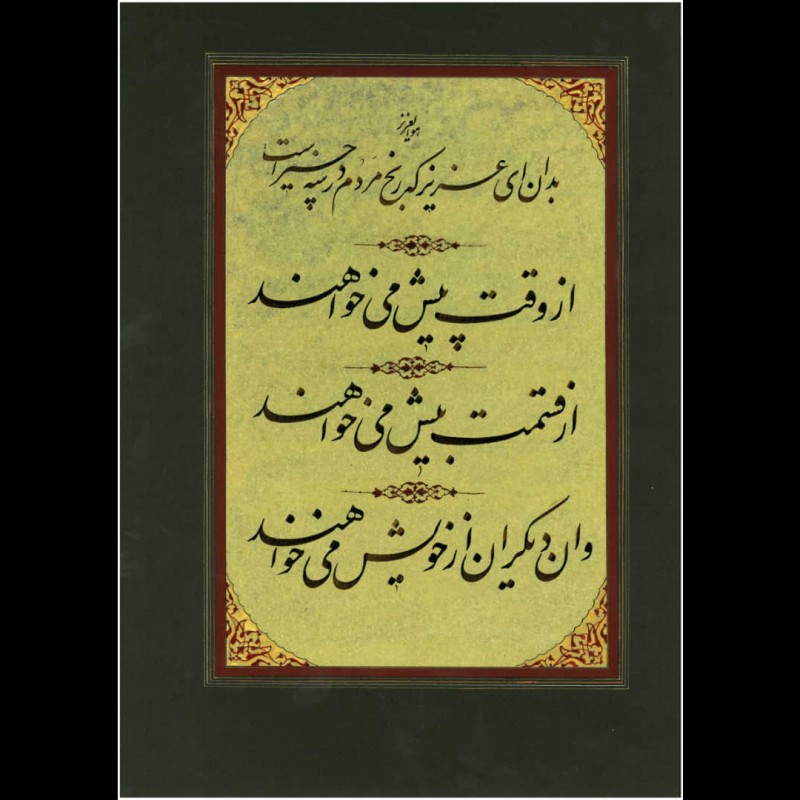 هوالعزیز
بدان ای عزیز که رنج مردم در سه چیز است
از وقت پیش می خواهند
از قسمت بیش می خواهند
وان دیگران از خویش می خواهند